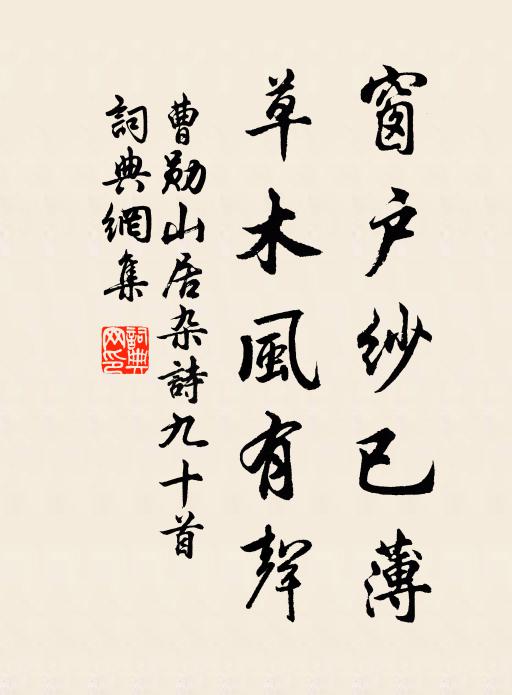 窗戶紗已薄
草木風有聲
曹勛山居杂詩九十首
詞典網集
詞典
网印